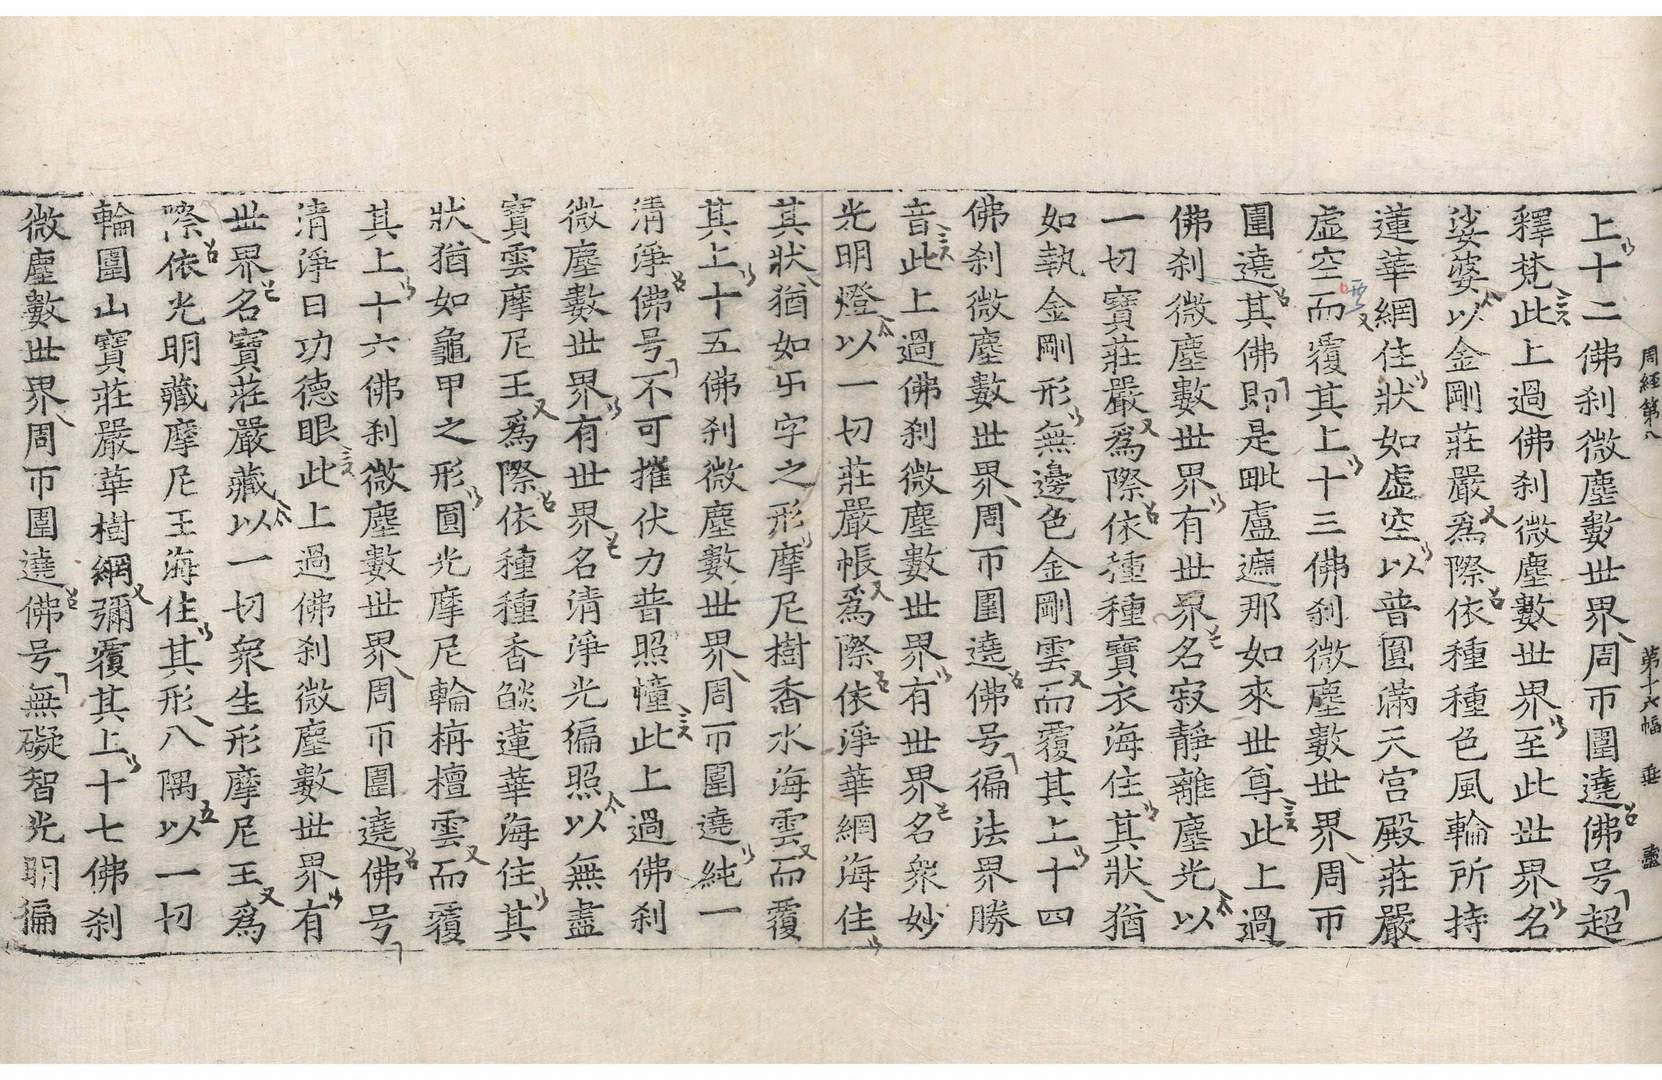 周經第八　第十六幅　垂　
上十二佛刹微塵數世界周帀圍遶佛号超
釋梵此上過佛刹微塵數世界至此世界名
娑婆以金剛莊嚴爲際依種種色風輪所持
蓮華網住狀如虛空以普圓滿天宮殿莊嚴
虛空雲而覆其上十三佛刹微塵數世界周帀
圍遶其佛即是毗盧遮那如來世尊此上過
佛刹微塵數世界有世界名寂靜離塵光以
一切寶莊嚴爲際依種種寶衣海住其狀猶
如執金剛形無邊色金剛雲而覆其上十四
佛刹微塵數世界周帀圍遶佛号徧法界勝
音此上過佛刹微塵數世界有世界名衆妙
光明燈以一切莊嚴帳爲際依淨華網海住
其狀猶如卐字之形摩尼樹香水海雲而覆
其上十五佛刹微塵數世界周帀圍遶純一
清淨佛号不可摧伏力普照幢此上過佛刹
微塵數世界有世界名清淨光徧照以無盡
寶雲摩尼王爲際依種種香燄蓮華海住其
狀猶如龜甲之形圓光摩尼輪栴檀雲而覆
其上十六佛刹微塵數世界周帀圍遶佛号
清淨日功德眼此上過佛刹微塵數世界有
世界名寶莊嚴藏以一切衆生形摩尼王爲
際依光明藏摩尼王海住其形八隅以一切
輪圍山寶莊嚴華樹網彌覆其上十七佛刹
微塵數世界周帀圍遶佛号無礙智光明徧